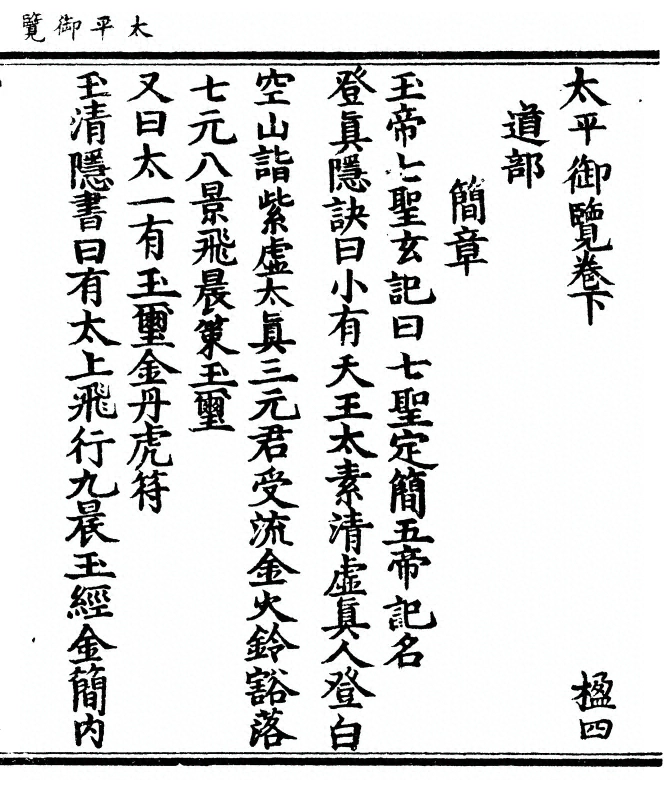 太平御覽
太平御覽卷下 楹四
道部
簡章
玉帝七聖玄記曰七聖定簡五帝記名
登眞隱訣曰小有天王太素清虛眞人登白
空山詣紫虛太眞三元君受流金火鈴豁落
七元八景飛晨策玉璽
又曰太一有玉璽金丹虎符
玉清隱書曰有太上飛行九晨玉經金簡內